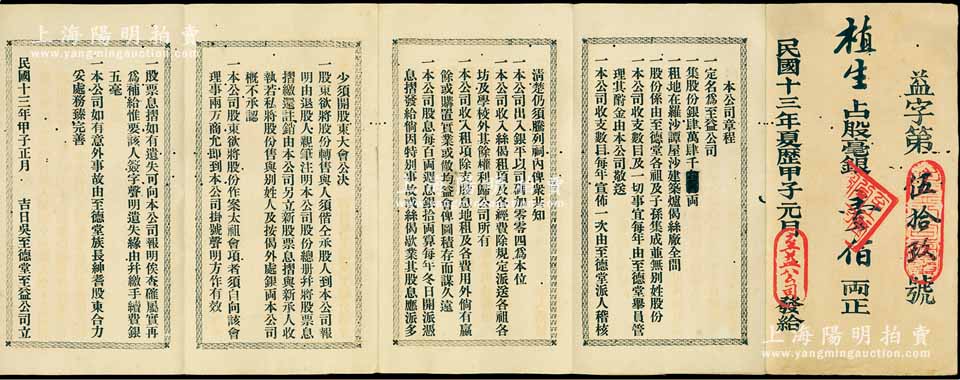 益字第伍拾玖號
植生占股毫銀壹佰両正
民國十三年夏歷甲子元月 發給
至益公司
本公司章程
一定名爲至益公司
一集股份銀肆萬肆千 両
一租地在羅沙譚屋沙建築爐偈絲廠全間
一股份係由至德堂各祖及子孫集成並無别姓股份
一本公司收支數目及一切事宜每年由至德堂舉員管
理其酧金由本公司敬送
一本公司收支數目每年宣佈一次由至德堂派人稽核
清楚仍須臚列祠內俾衆共知
一本公司出入銀平以司碼九零零四為本位
一本公司收入絲偈租項及年中各經費除規定派送各祖各
坊及學校外其餘權利歸公司所有
一本公司收入租項除支股息地租及各費用外倘有嬴
餘或購置實業或做均益會俾圖積存而謀久遠
一本公司股息每百両週息銀拾両算每年冬日開派憑
息摺發給倘因特别事故或絲偈歇業其股息應派多
少須開股東大會公決
一股東欲將股份轉售與人須偕仝承股人到本公司報
明由退股人親筆注明本公司股份總册并將股票息
摺繳還註銷由本公司另立新股票息摺與新承人收
執若私將股份售與别姓人及按偈外處銀両本公司
概不承認
一本公司股東欲將股份作案太祖會項者須自向該會
理事兩方商允即到本公司掛號聲明方作有效
一股票息摺如有遺失可向本公司報明俟查確屬實再
爲補給惟要該人簽字聲明遺失緣由幷繳手續費銀
五毫
一本公司如有意外事故由至德堂族長紳耆股東合力
妥處務臻完善
民國十三年甲子正月 吉日吳至德堂至益公司立
上海陽明拍賣
www.yangmingauction.com
上海陽明拍賣
www.yangmingauction.com